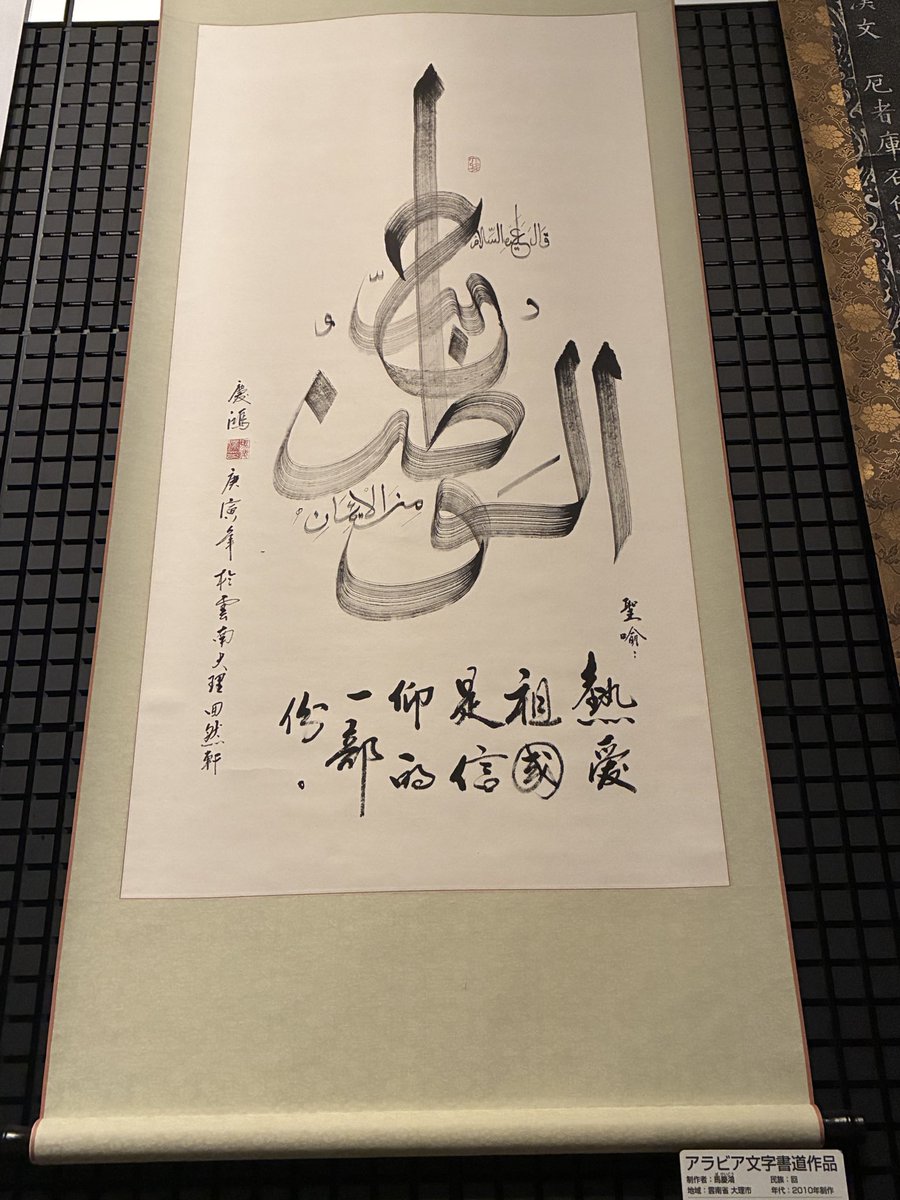 قال عليه السلام
حبّ الوطن
من الإيمان
聖喻：
熱愛
祖國
是信
仰的
一部
份。
慶鴻 庚寅年於雲南大理回然軒
アラビア文字書道作品
制作者：馬慶鴻 民族：回
地域：雲南省 大理市 年代：2010年制作